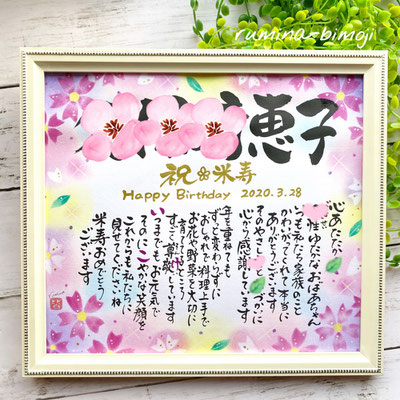 rumina-bimoji
恵子
祝 米寿
Happy Birthday 2020.3.28
心あたたか
性ゆたかなおばあちゃん
いつも私たち家族のこと
気にかけてくれて本当に
ありがとうございます
そのやさしさ
心から感謝しています
年を重ねても
ずっと変わらずに
おしゃれで料理上手で
お花や野菜を大切に
すごく尊敬しています
いつまでもお元気で
そのにこやかな笑顔を
これからも私たちに
見せてくださいね
米寿おめでとう
ございます